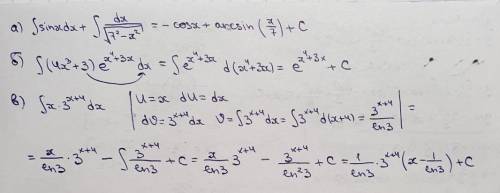 а) ∫sinxdx + ∫ dx/√(7²-x²) = -cosx + arcsin(x/7) + C
б) ∫(4x³+3)e^(x⁴+3x)dx = ∫e^(x⁴+3x) d(x⁴+3x) = e^(x⁴+3x) + C
в) ∫x·3^(x+4)dx | U=x dU=dx
dV=3^(x+4)dx V=∫3^(x+4)dx=∫3^(x+4)d(x+4)=3^(x+4)/ln3 | =
= x/ln3 · 3^(x+4) - ∫ 3^(x+4)/ln3 + C = x/ln3 3^(x+4) - 3^(x+4)/ln²3 + C = 1/ln3 · 3^(x+4)(x - 1/ln3) + C